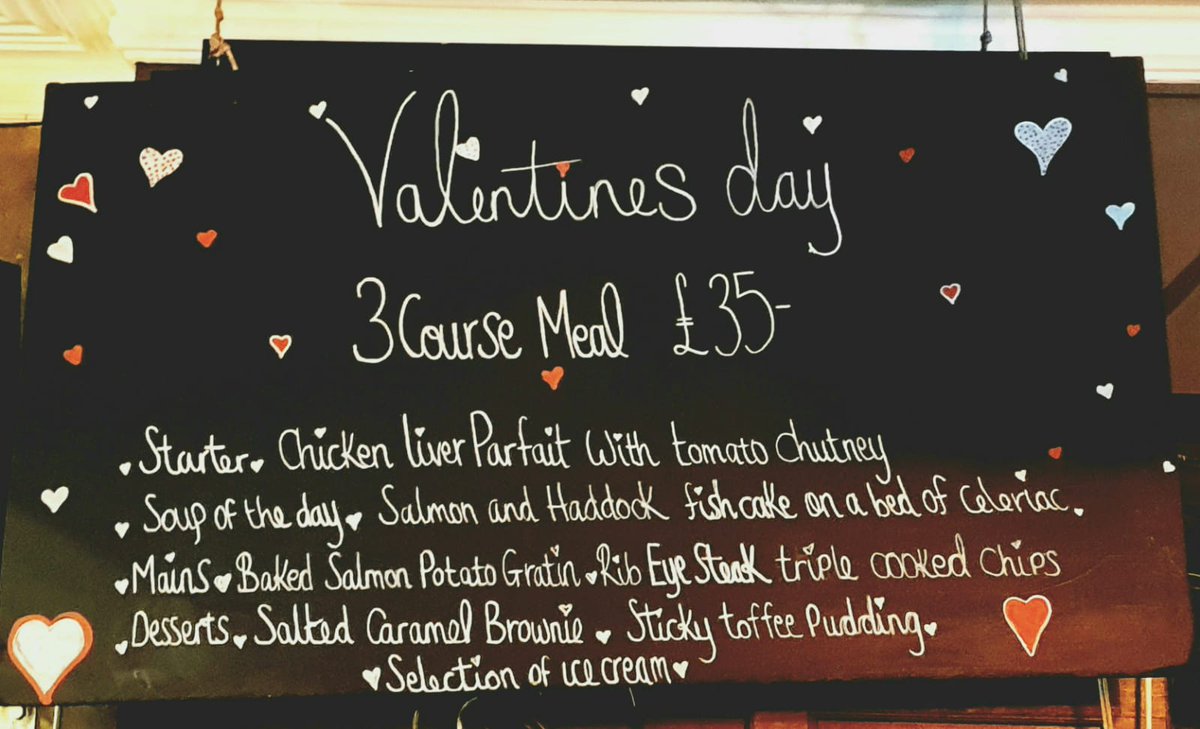 Valentines day
3 Course Meal £35-
Starter Chicken liver Parfait with tomato chutney
Soup of the day Salmon and Haddock fishcake on a bed of Celeriac
Mains Baked Salmon Potato Gratin Rib Eye Steak triple cooked chips
Desserts Salted Caramel Brownie Sticky toffee Pudding
Selection of ice cream